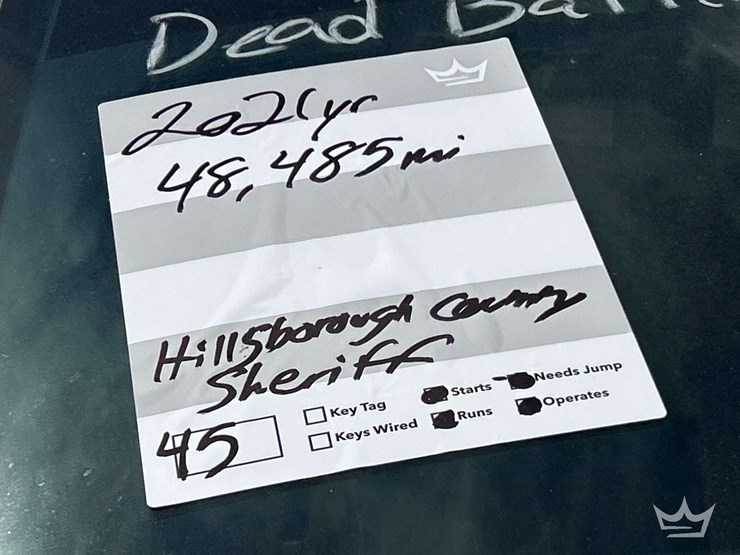 Dead
2021yr
48,485mi
Hillsborough County
Sheriff
45
Key Tag
Keys Wired
Starts
Runs
Needs Jump
Operates